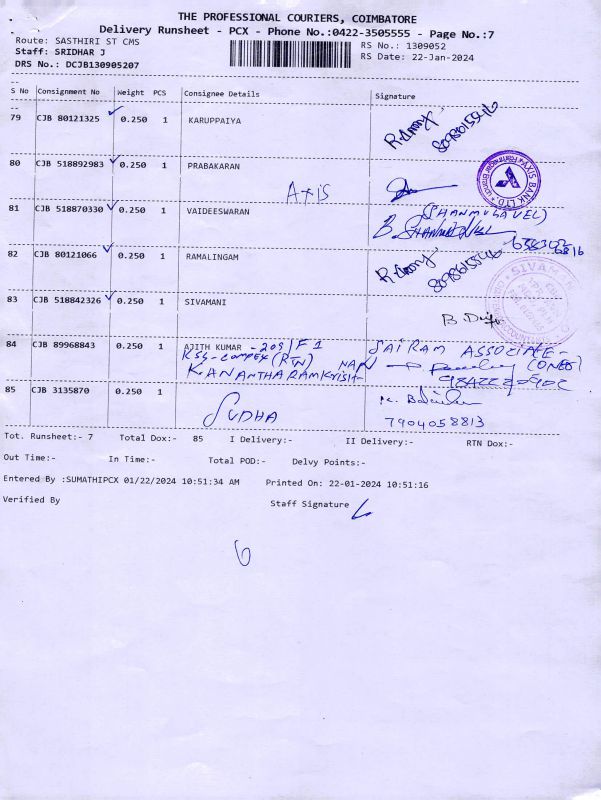 THE PROFESSIONAL COURIERS, COIMBATORE
Delivery Runsheet - PCX - Phone No.:0422-3505555 - Page No.:7
Route: SASTHIRI ST CMS
RS No.: 1309052
Staff: SRIDHAR J
RS Date: 22-Jan-2024
DRS No.: DCJB130905207
S No Consignment No Weight PCS Consignee Details Signature
79 CJB 80121325 0.250 1 KARUPPAIYA
8098615546
80 CJB 518892983 0.250 1 PRABAKARAN
AXIS BANK LTD
AXIS
81 CJB 518870330 0.250 1 VAIDEESWARAN
(SHANMUGAVEL)
82 CJB 80121066 0.250 1 RAMALINGAM
8098615546
SIVAMANI
83 CJB 518842326 0.250 1 SIVAMANI
84 CJB 89968843 0.250 1 AJITH KUMAR - 209/F1
SAIRAM ASSOCIATE -
(RTN)
85 CJB 3135870 0.250 1
SUDHA
7904058813
Tot. Runsheet:- 7 Total Dox:- 85 I Delivery:- II Delivery:- RTN Dox:-
Out Time:- In Time:- Total POD:- Delvy Points:-
Entered By :SUMATHIPCX 01/22/2024 10:51:34 AM Printed On: 22-01-2024 10:51:16
Verified By Staff Signature